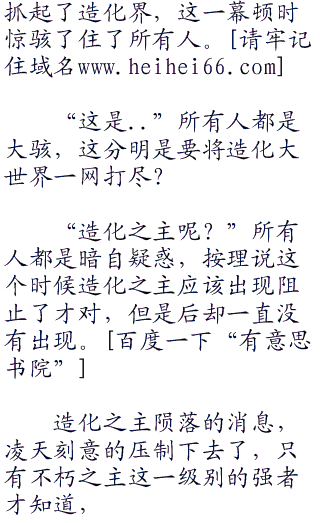 抓起了造化界，这一幕顿时
惊骇了住了所有人。[请牢记
住域名www.heihei66.com]
“这是..”所有人都是
大骇，这分明是要将造化大
世界一网打尽？
“造化之主呢？”所有
人都是暗自疑惑，按理说这
个时候造化之主应该出现阻
止了才对，但是后却一直没
有出现。[百度一下“有意思
书院”]
造化之主陨落的消息，
凌天刻意的压制下去了，只
有不朽之主这一级别的强者
才知道，